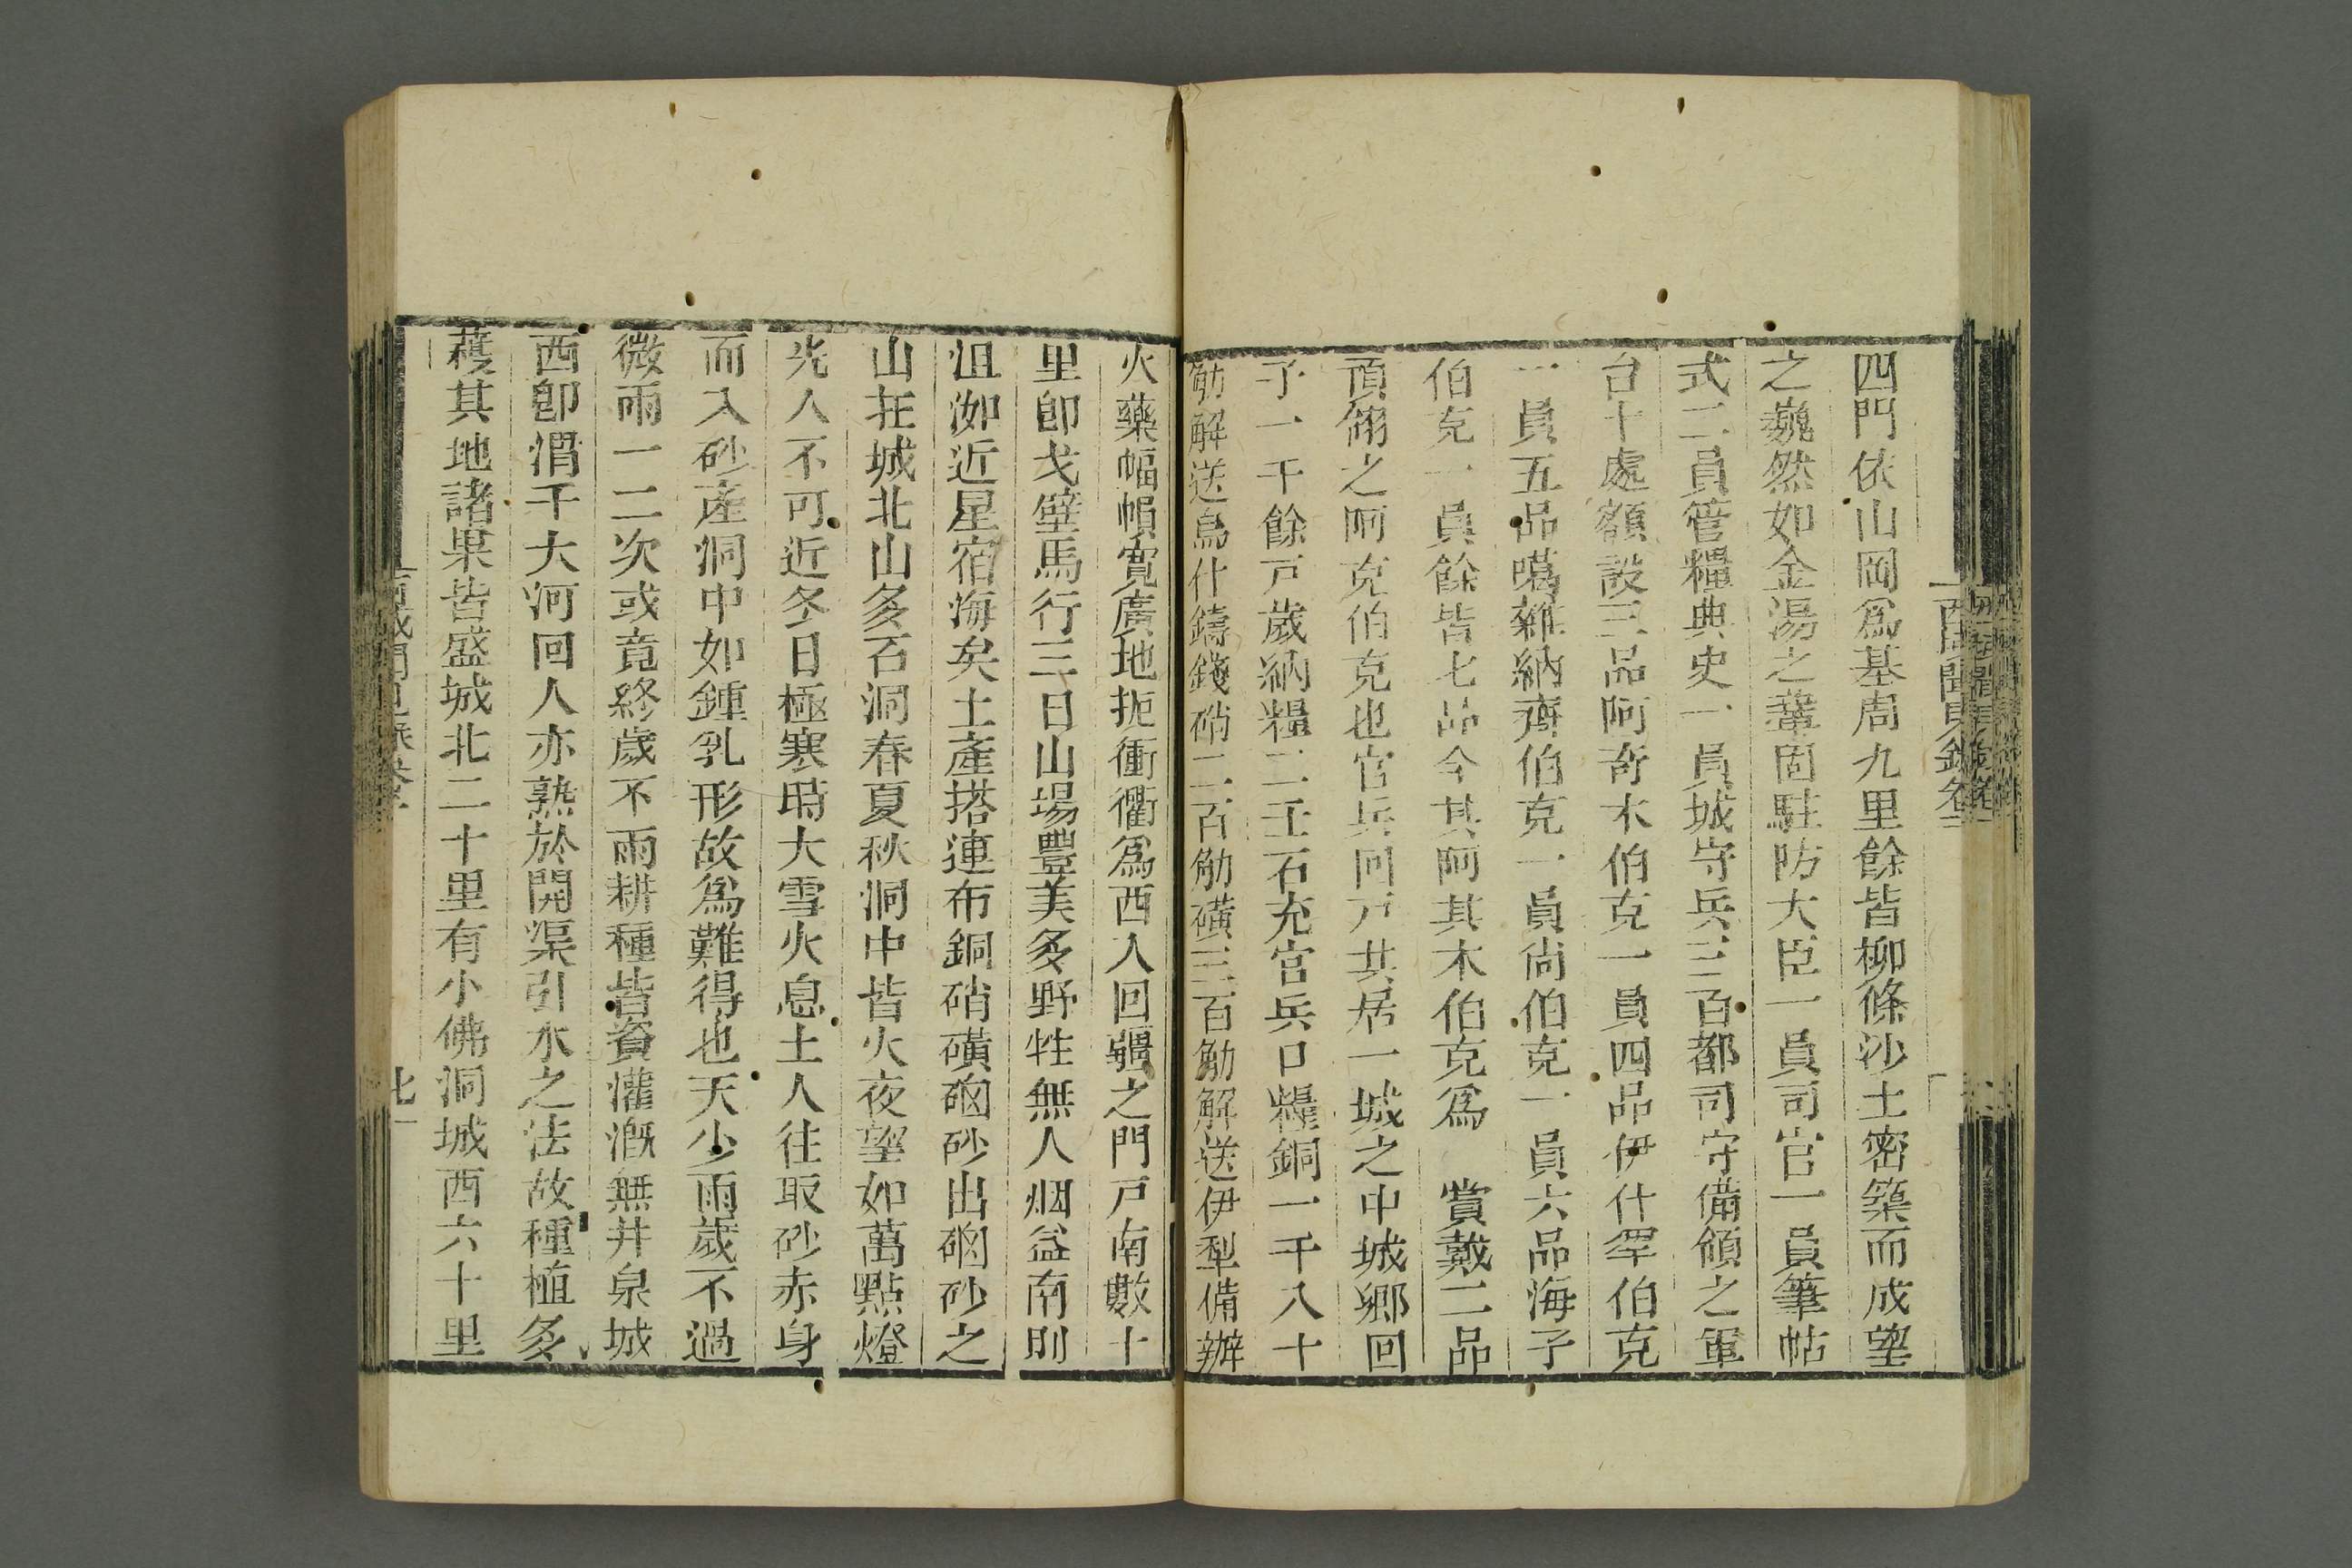 四門依山岡爲基周九里餘皆柳條沙土密築而成望
之巍然如金湯之鞏固駐防大臣一員司官一員筆帖
式二員管糧典史一員城守兵三百都司守備領之軍
台十處額設三品阿奇木伯克一員四品伊什罕伯克
一員五品噶雜納齊伯克一員尚伯克一員六品海子
伯克一員餘皆七品今其阿其木伯克爲 賞戴二品
頂翎之阿克伯克也官兵回戸共居一城之中城鄉回
子一千餘戸歲納糧二千石充官兵口糧銅一千八十
觔解送烏什鑄錢硝二百觔磺三百觔解送伊犁備辦
火藥幅幀寬廣地扼衝衢爲西入回疆之門戸南數十
里卽戈壁馬行三日山場豐美多野牲無人烟益南則
沮洳近星宿海矣土產搭連布銅硝磺硇砂出硇砂之
山在城北山多石洞春夏秋洞中皆火夜望如萬點燈
光人不可近冬日極寒時大雪火息土人往取砂赤身
而入砂產洞中如鍾乳形故爲難得也天少雨歲不過
微雨一二次或竟終歲不雨耕種皆資灌漑無井泉城
西卽渭干大河回人亦熟於開渠引水之法故種植多
穫其地諸果皆盛城北二十里有小佛洞城西六十里